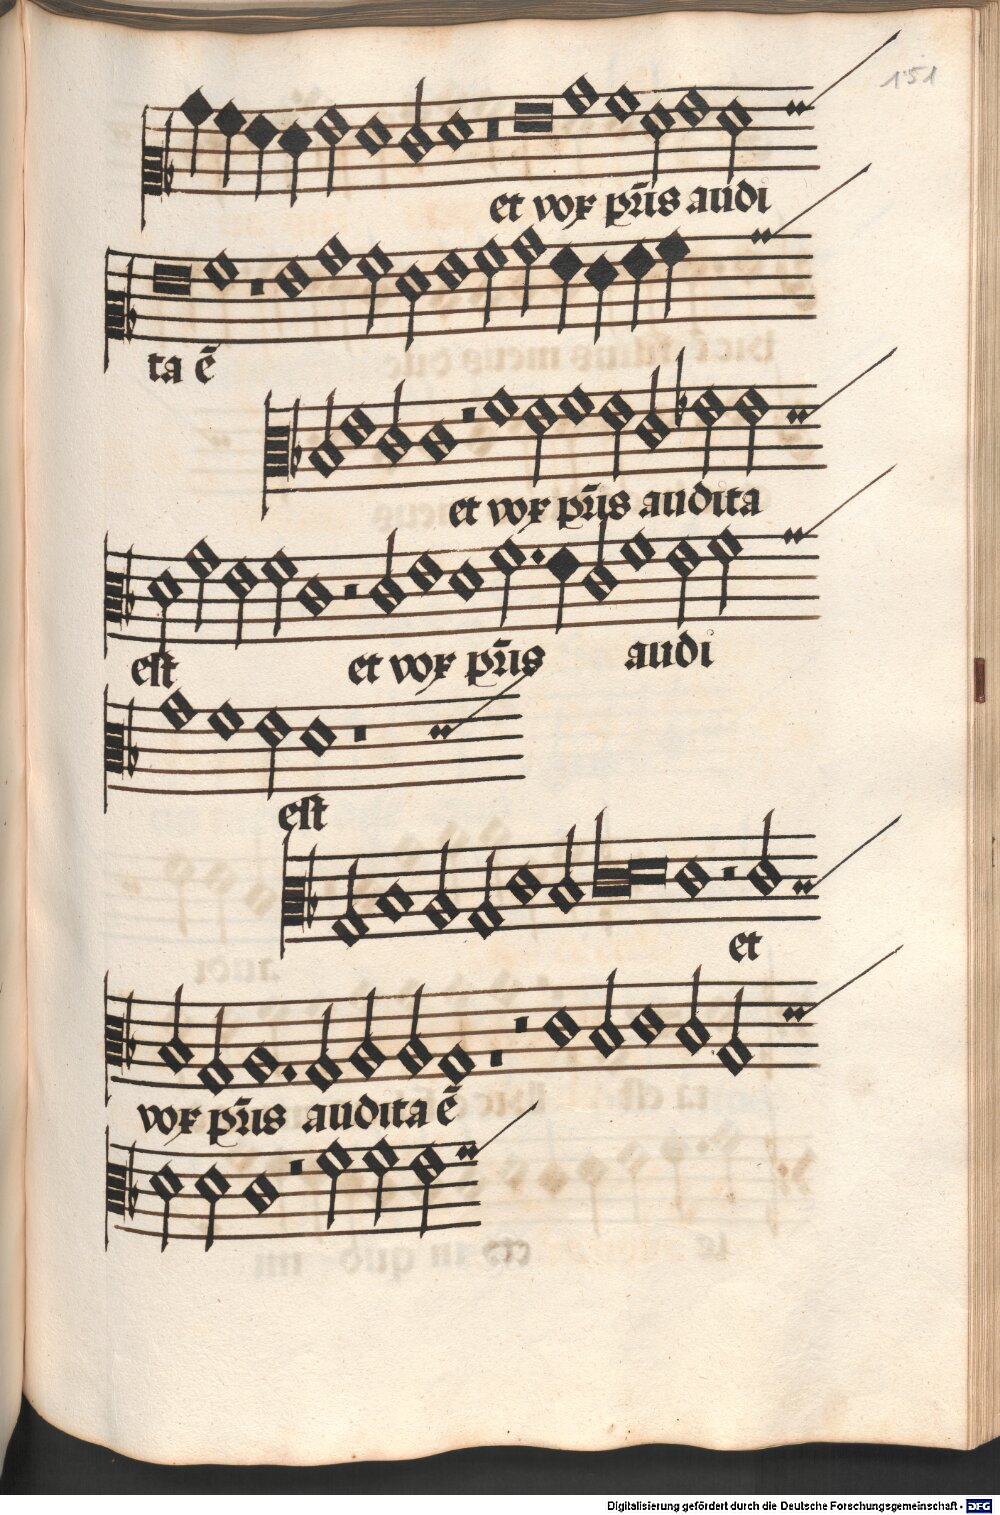 151
et vox pr̄is audi
ta ē
et vox pr̄is audita
est et vox pr̄is audi
est
et
vox pr̄is audita ē
Digitalisierung gefördert durch die Deutsche Forschungsgemeinschaft - DFG